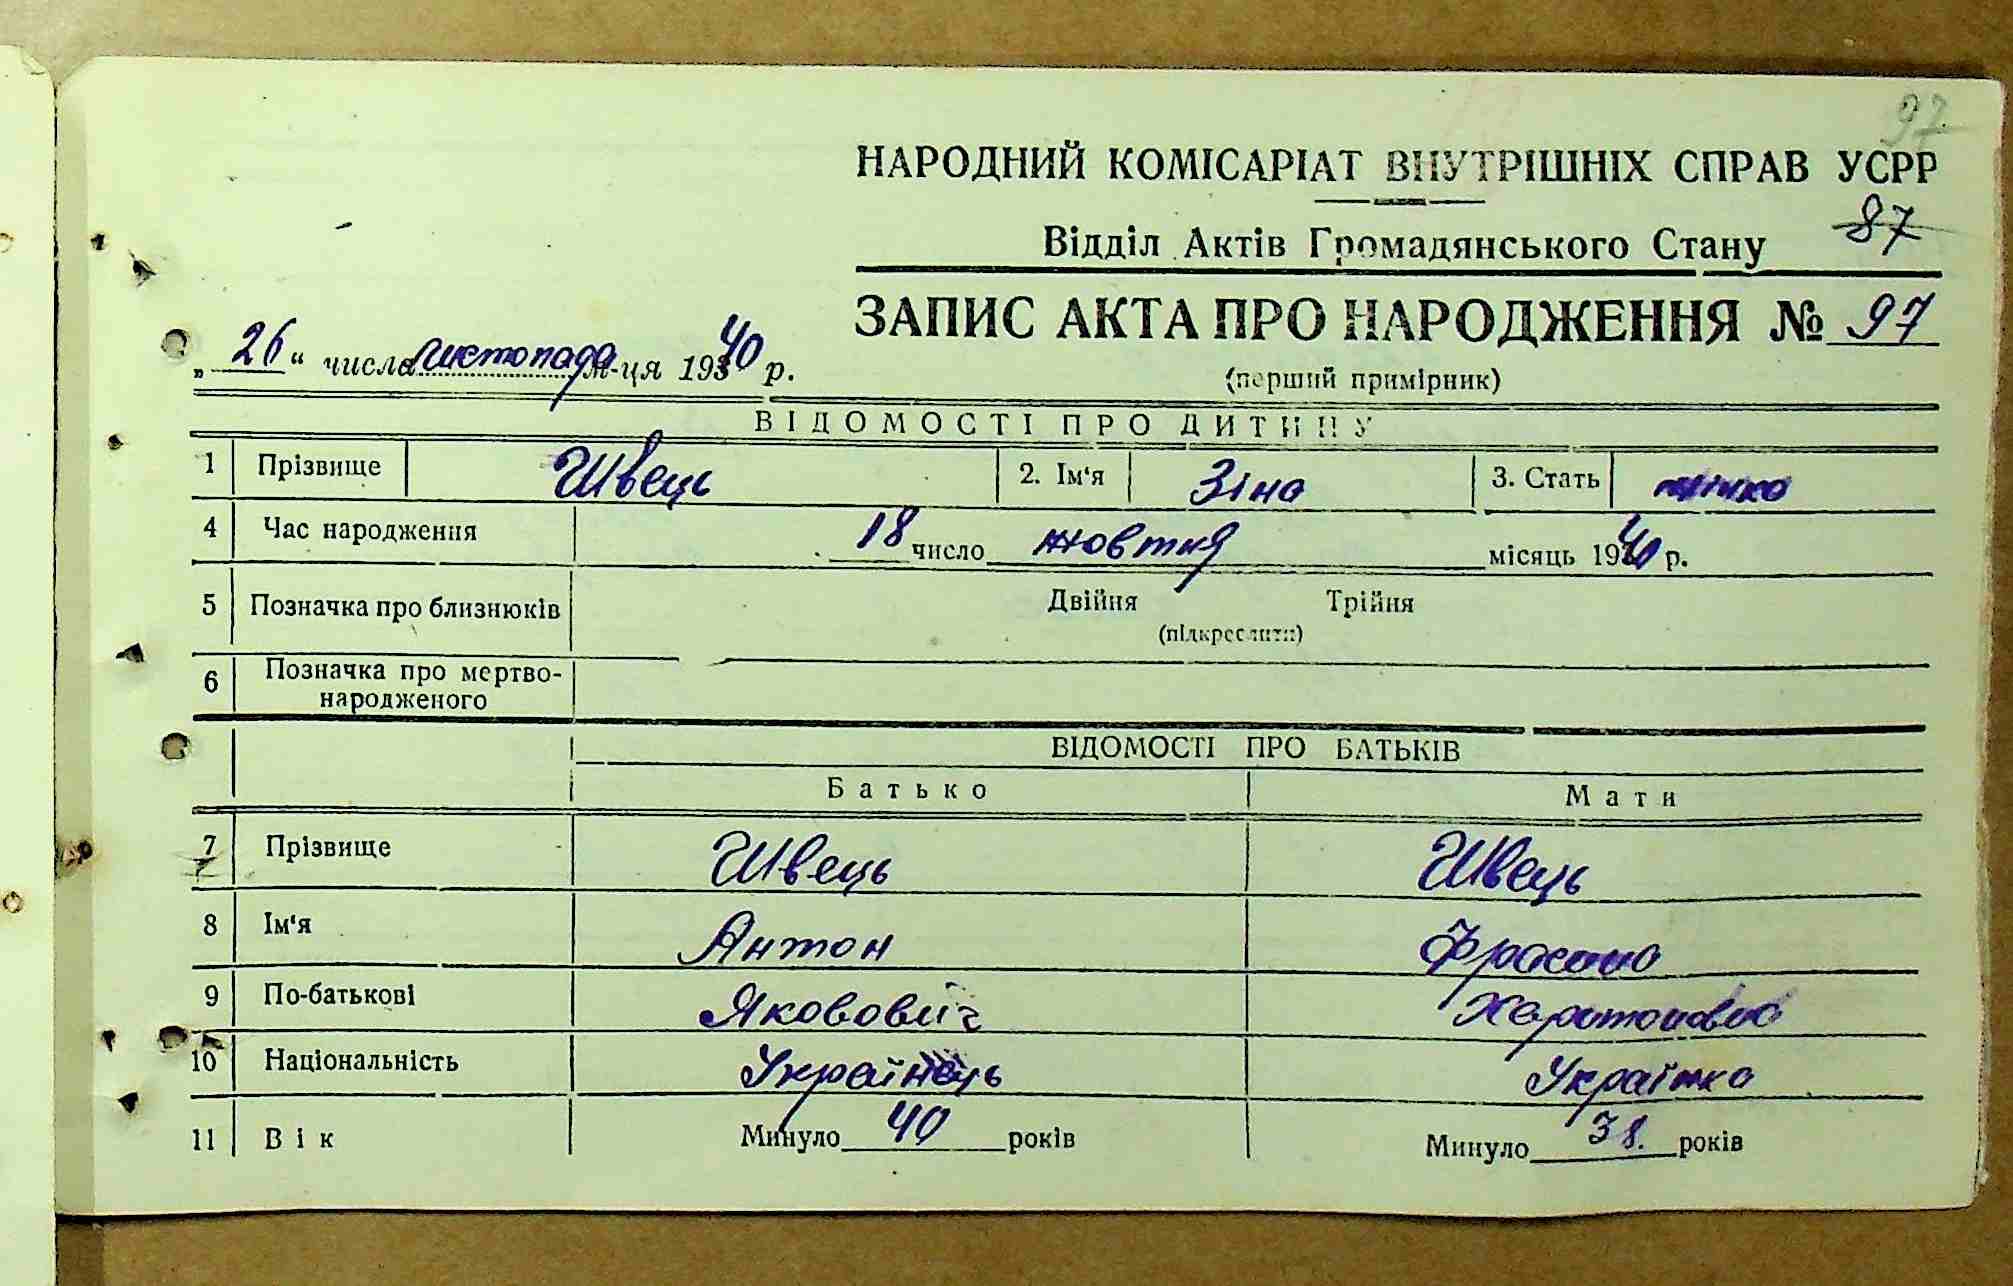 97
НАРОДНИЙ КОМІСАРІАТ ВНУТРІШНІХ СПРАВ УСРР
Відділ Актів Громадянського Стану 87
ЗАПИС АКТА ПРО НАРОДЖЕННЯ № 97
„26“ числа листопада м-ця 1940 р.
(перший примірник)
ВІДОМОСТІ ПРО ДИТИНУ
1 Прізвище Швець 2. Ім‘я Зіна 3. Стать
4 Час народження 18 число жовтня місяць 1940 р.
5 Позначка про близнюків Двійня Трійня
(підкреслити)
6 Позначка про мертво-
народженого
ВІДОМОСТІ ПРО БАТЬКІВ
Батько Мати
7 Прізвище Швець Швець
8 Ім‘я Антон Фросина
9 По-батькові Якович Харитоновна
10 Національність Українець Українка
11 Вік Минуло 40 років Минуло 38. років